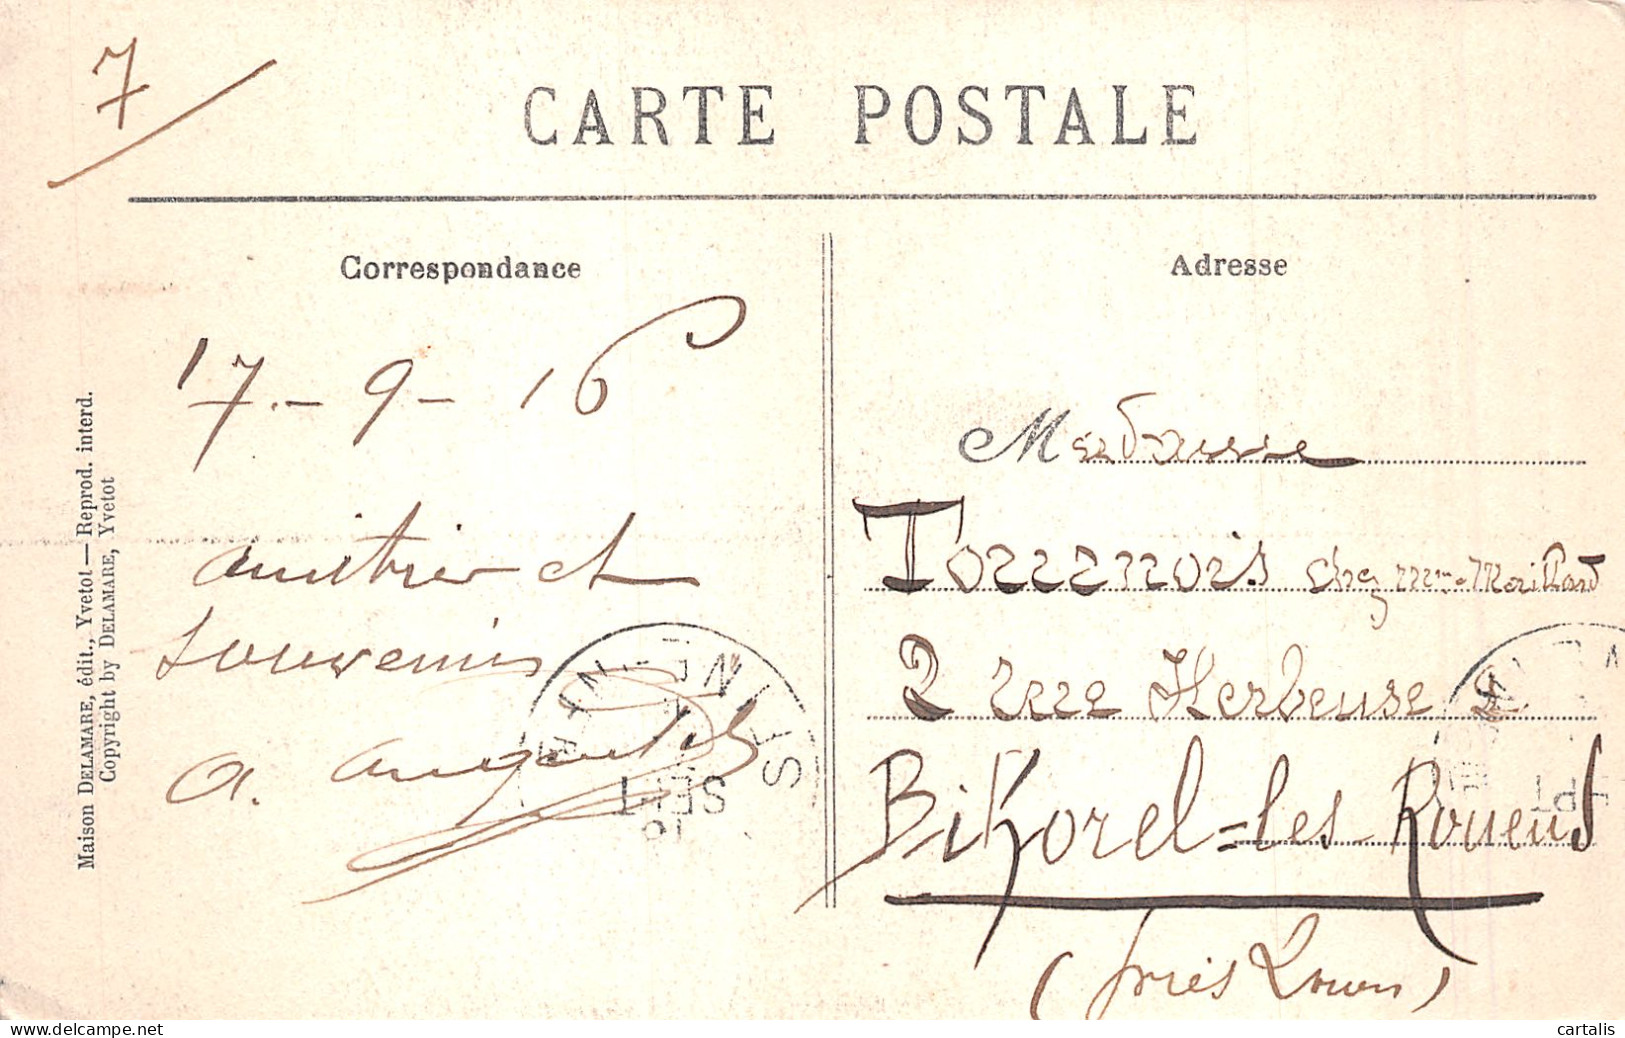 7
CARTE POSTALE
Correspondance
Adresse
17.-9-16
amitiés et
souvenirs
a.
Madame
chez mme
2 rue Herbeuse
Bihorel=les Rouen
(près Rouen)
SEPT
Maison DELAMARE, édit., Yvetot — Reprod. interd.
Copyright by DELAMARE, Yvetot
cartalis